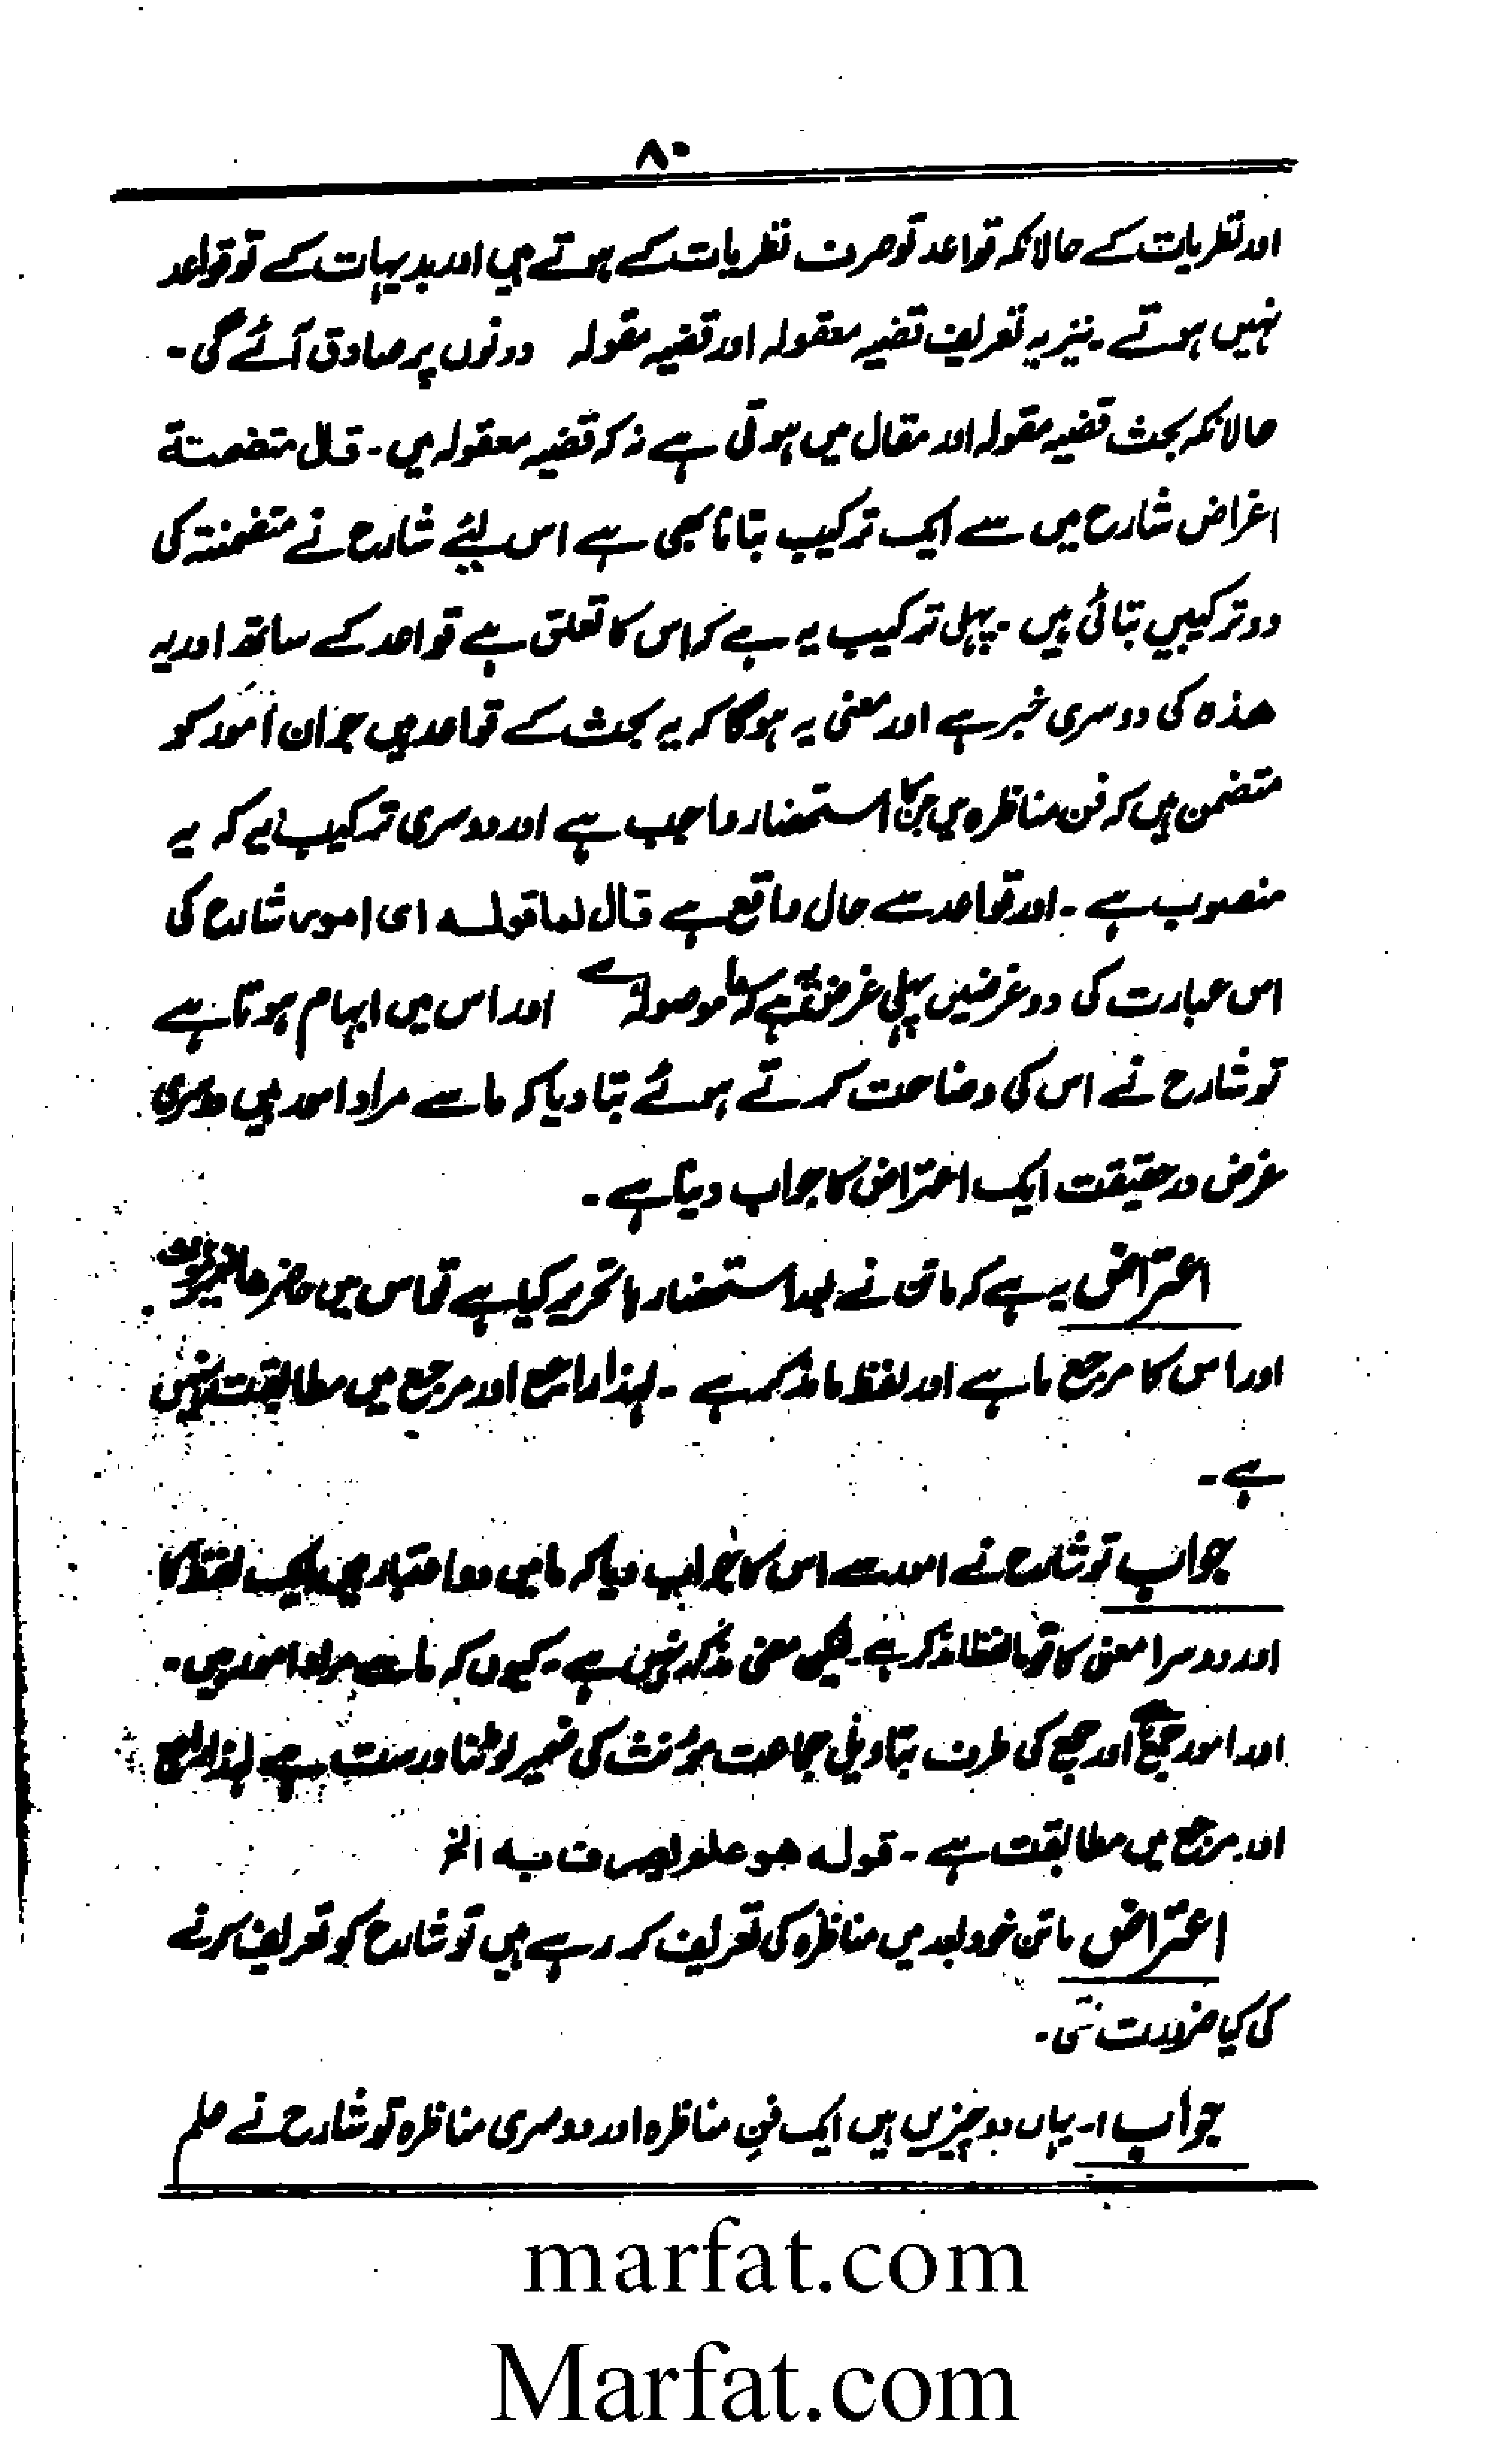 ۸۰
اور نظریات کے حالانکہ قواعد تو صرف نظریات کے ہوتے ہیں اور بدیہات کے تو قواعد
نہیں ہوتے ۔ نیز یہ تعریف قضیہ معقولہ اور قضیہ مقولہ دونوں پر صادق آئے گی ۔
حالانکہ بحث قضیہ مقولہ اور مقال میں ہوتی ہے نہ کہ قضیہ معقولہ میں ۔ قال متضمنة
اغراض شارح میں سے ایک ترکیب بتانا بھی ہے اس لیئے شارح نے متضمنتہ کی
دو ترکیبیں بتائی ہیں ۔ پہلی ترکیب یہ ہے کہ اس کا تعلق ہے قواعد کے ساتھ اور یہ
ھذہ کی دوسری خبر ہے اور معنی یہ ہوگا کہ یہ بحث کے قواعد ہیں جو ان امور کو
متضمن ہیں کہ فن مناظرہ میں جن کا استحضار واجب ہے اور دوسری ترکیب یہ کہ یہ
منصوب ہے ۔ اور قواعد سے حال واقع ہے قال لما قولہ ای امور شارح کی
اس عبارت کی دو غرضیں پہلی غرض یہ ہے کہ ما موصولہ ہے اور اس میں ابہام ہوتا ہے
تو شارح نے اس کی وضاحت کرتے ہوئے بتا دیا کہ ما سے مراد امور ہیں دوسری
غرض درحقیقت ایک اعتراض کا جواب دینا ہے ۔
اعتراض یہ ہے کہ ماتن نے استحضارہا تحریر کیا ہے تو اس میں ھا ضمیر
اور اس کا مرجع ما ہے اور لفظ ما مذکر ہے ۔ لہذا راجع اور مرجع میں مطابقت نہیں
ہے ۔
جواب تو شارح نے امور سے اس کا جواب دیا کہ ما میں دو اعتبار ہیں ایک لفظ کا
اور دوسرا معنی کا تو ما لفظا مذکر ہے ۔ لیکن معنی مذکر نہیں ہے ۔ کیوں کہ ما سے مراد امور ہیں ۔
اور امور جمع ہے اور جمع کی طرف بتاویل جماعت مؤنث کی ضمیر لوٹنا درست ہے لہذا راجع
اور مرجع میں مطابقت ہے ۔ قولہ ھو علم یعرف بہ الخ
اعتراض ماتن خود بعد میں مناظرہ کی تعریف کر رہے ہیں تو شارح کو تعریف کرنے
کی کیا ضرورت تھی ۔
جواب :۔ یہاں دو چیزیں ہیں ایک فنِ مناظرہ اور دوسری مناظرہ تو شارح نے علم
marfat.com
Marfat.com